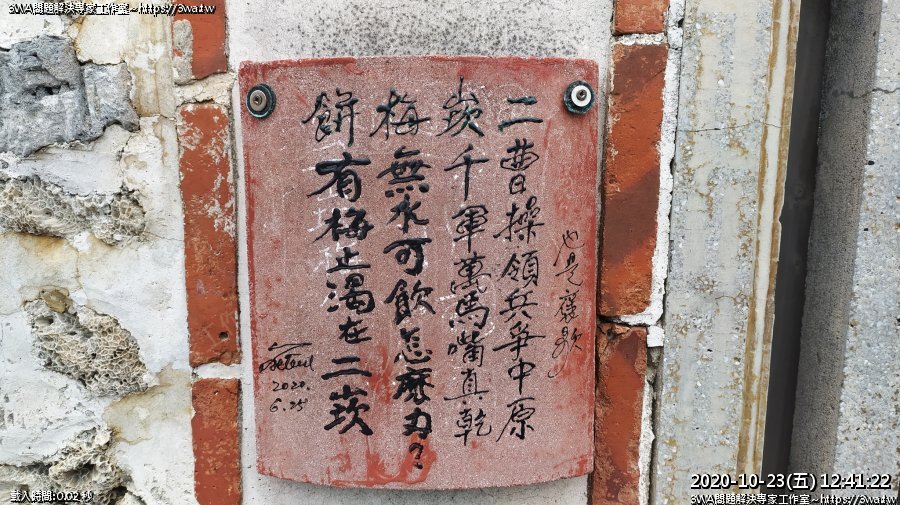 3WA問題解決專家工作室~https://3wa.tw
也是褒歌
二曹操領兵爭中原
崁千軍萬馬嘴真乾
梅無水可飲怎麼办?
餅有梅止渴在二崁
2020.
6.25
載入時間:0.02 秒
2020-10-23(五) 12:41:22
3WA問題解決專家工作室~https://3wa.tw